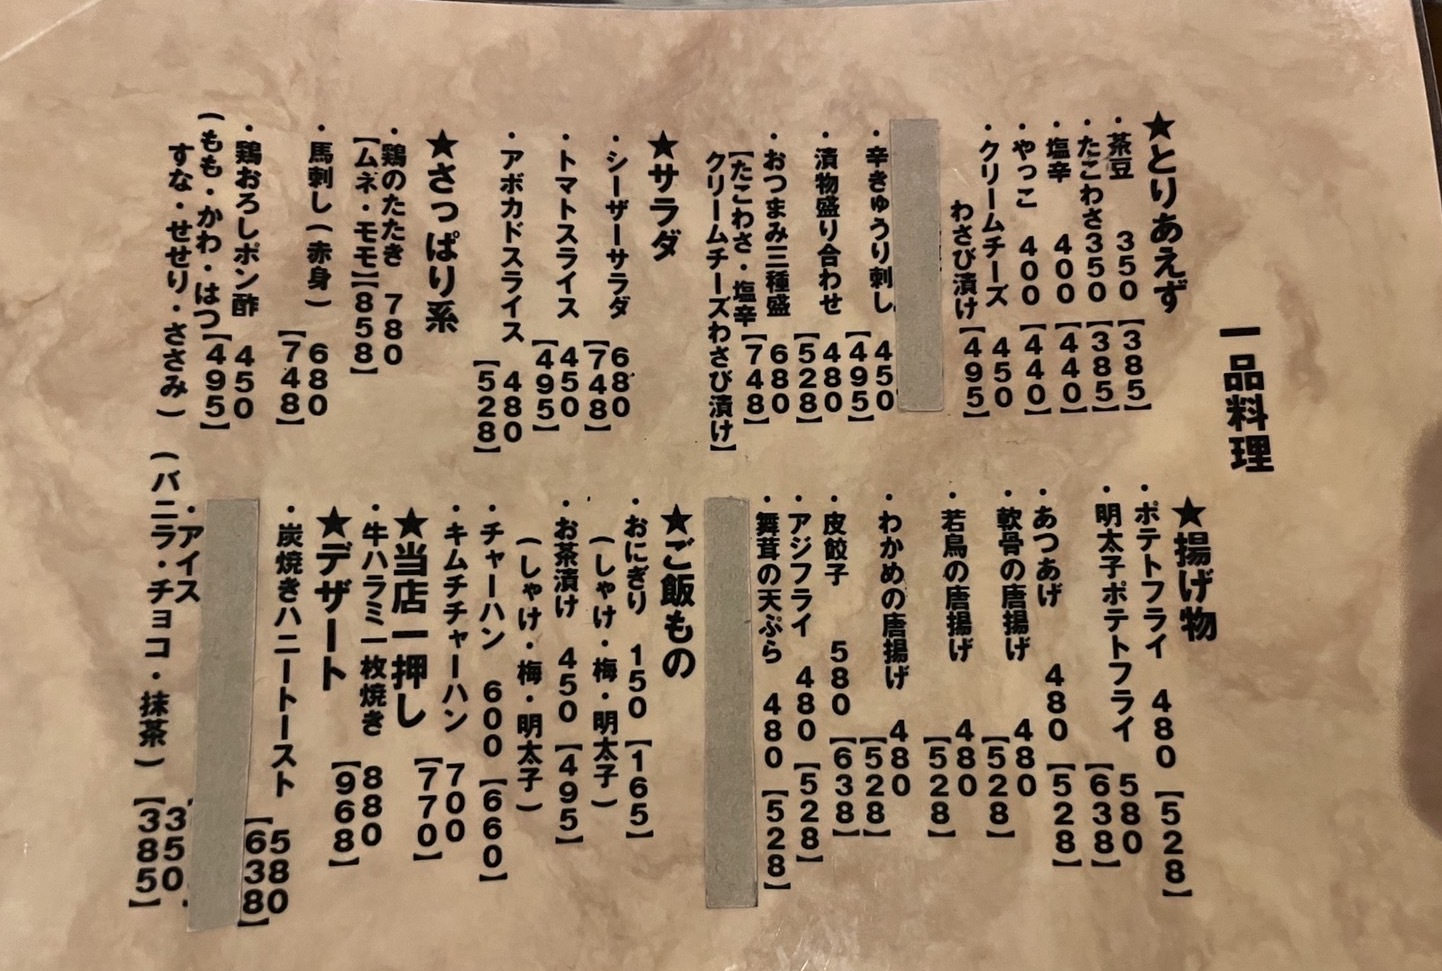 一品料理
★とりあえず
・茶豆 350【385】
・たこわさ350【385】
・塩辛 400【440】
・やっこ 400【440】
・クリームチーズ
わさび漬け 450【495】
・辛きゅうり刺し 450【495】
・漬物盛り合わせ 480【528】
・おつまみ三種盛 680【748】
【たこわさ・塩辛
クリームチーズわさび漬け】
★サラダ
・シーザーサラダ 680【748】
・トマトスライス 450【495】
・アボカドスライス 480【528】
★さっぱり系
・鶏のたたき 780
【ムネ・モモ】【858】
・馬刺し(赤身) 680【748】
・鶏おろしポン酢 450【495】
(もも・かわ・はつ
すな・せせり・ささみ)
★揚げ物
・ポテトフライ 480【528】
・明太子ポテトフライ 580【638】
・あつあげ 480【528】
・軟骨の唐揚げ 480【528】
・若鳥の唐揚げ 480【528】
・わかめの唐揚げ 480【528】
・皮餃子 580【638】
・アジフライ 480【528】
・舞茸の天ぷら 480【528】
★ご飯もの
・おにぎり 150【165】
(しゃけ・梅・明太子)
・お茶漬け 450【495】
(しゃけ・梅・明太子)
・チャーハン 600【660】
・キムチチャーハン 700【770】
★当店一押し
・牛ハラミ一枚焼き 880【968】
★デザート
・炭焼きハニートースト 580【638】
・アイス 350
(バニラ・チョコ・抹茶)【385】